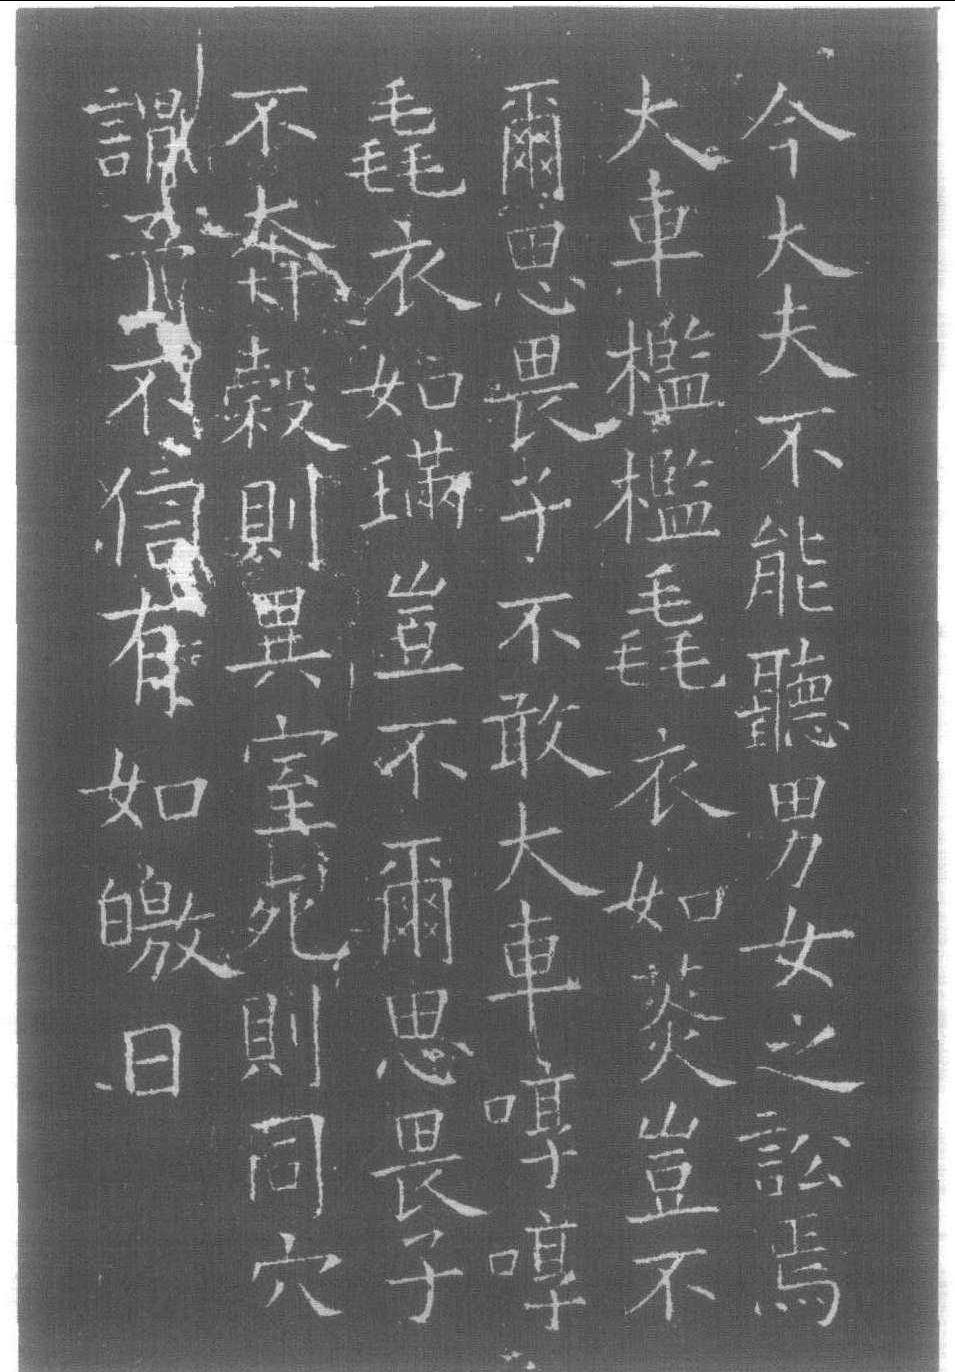 今大夫不能聽男女之訟焉
大車檻檻毳衣如菼豈不
爾思畏子不敢大車啍啍
毳衣如璊豈不爾思畏子
不奔穀則異室死則同穴
謂予不信有如皦日